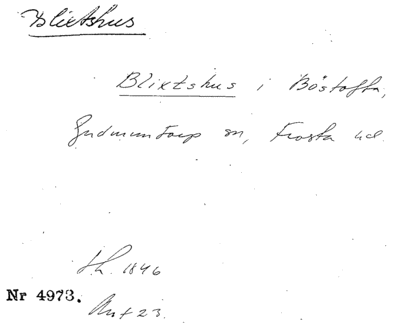 Blixtshus
Blixtshus i Böstofta,
Gudmuntorp sn, Frosta hd.
fh. 1846
Nr 4973. Ant 23.